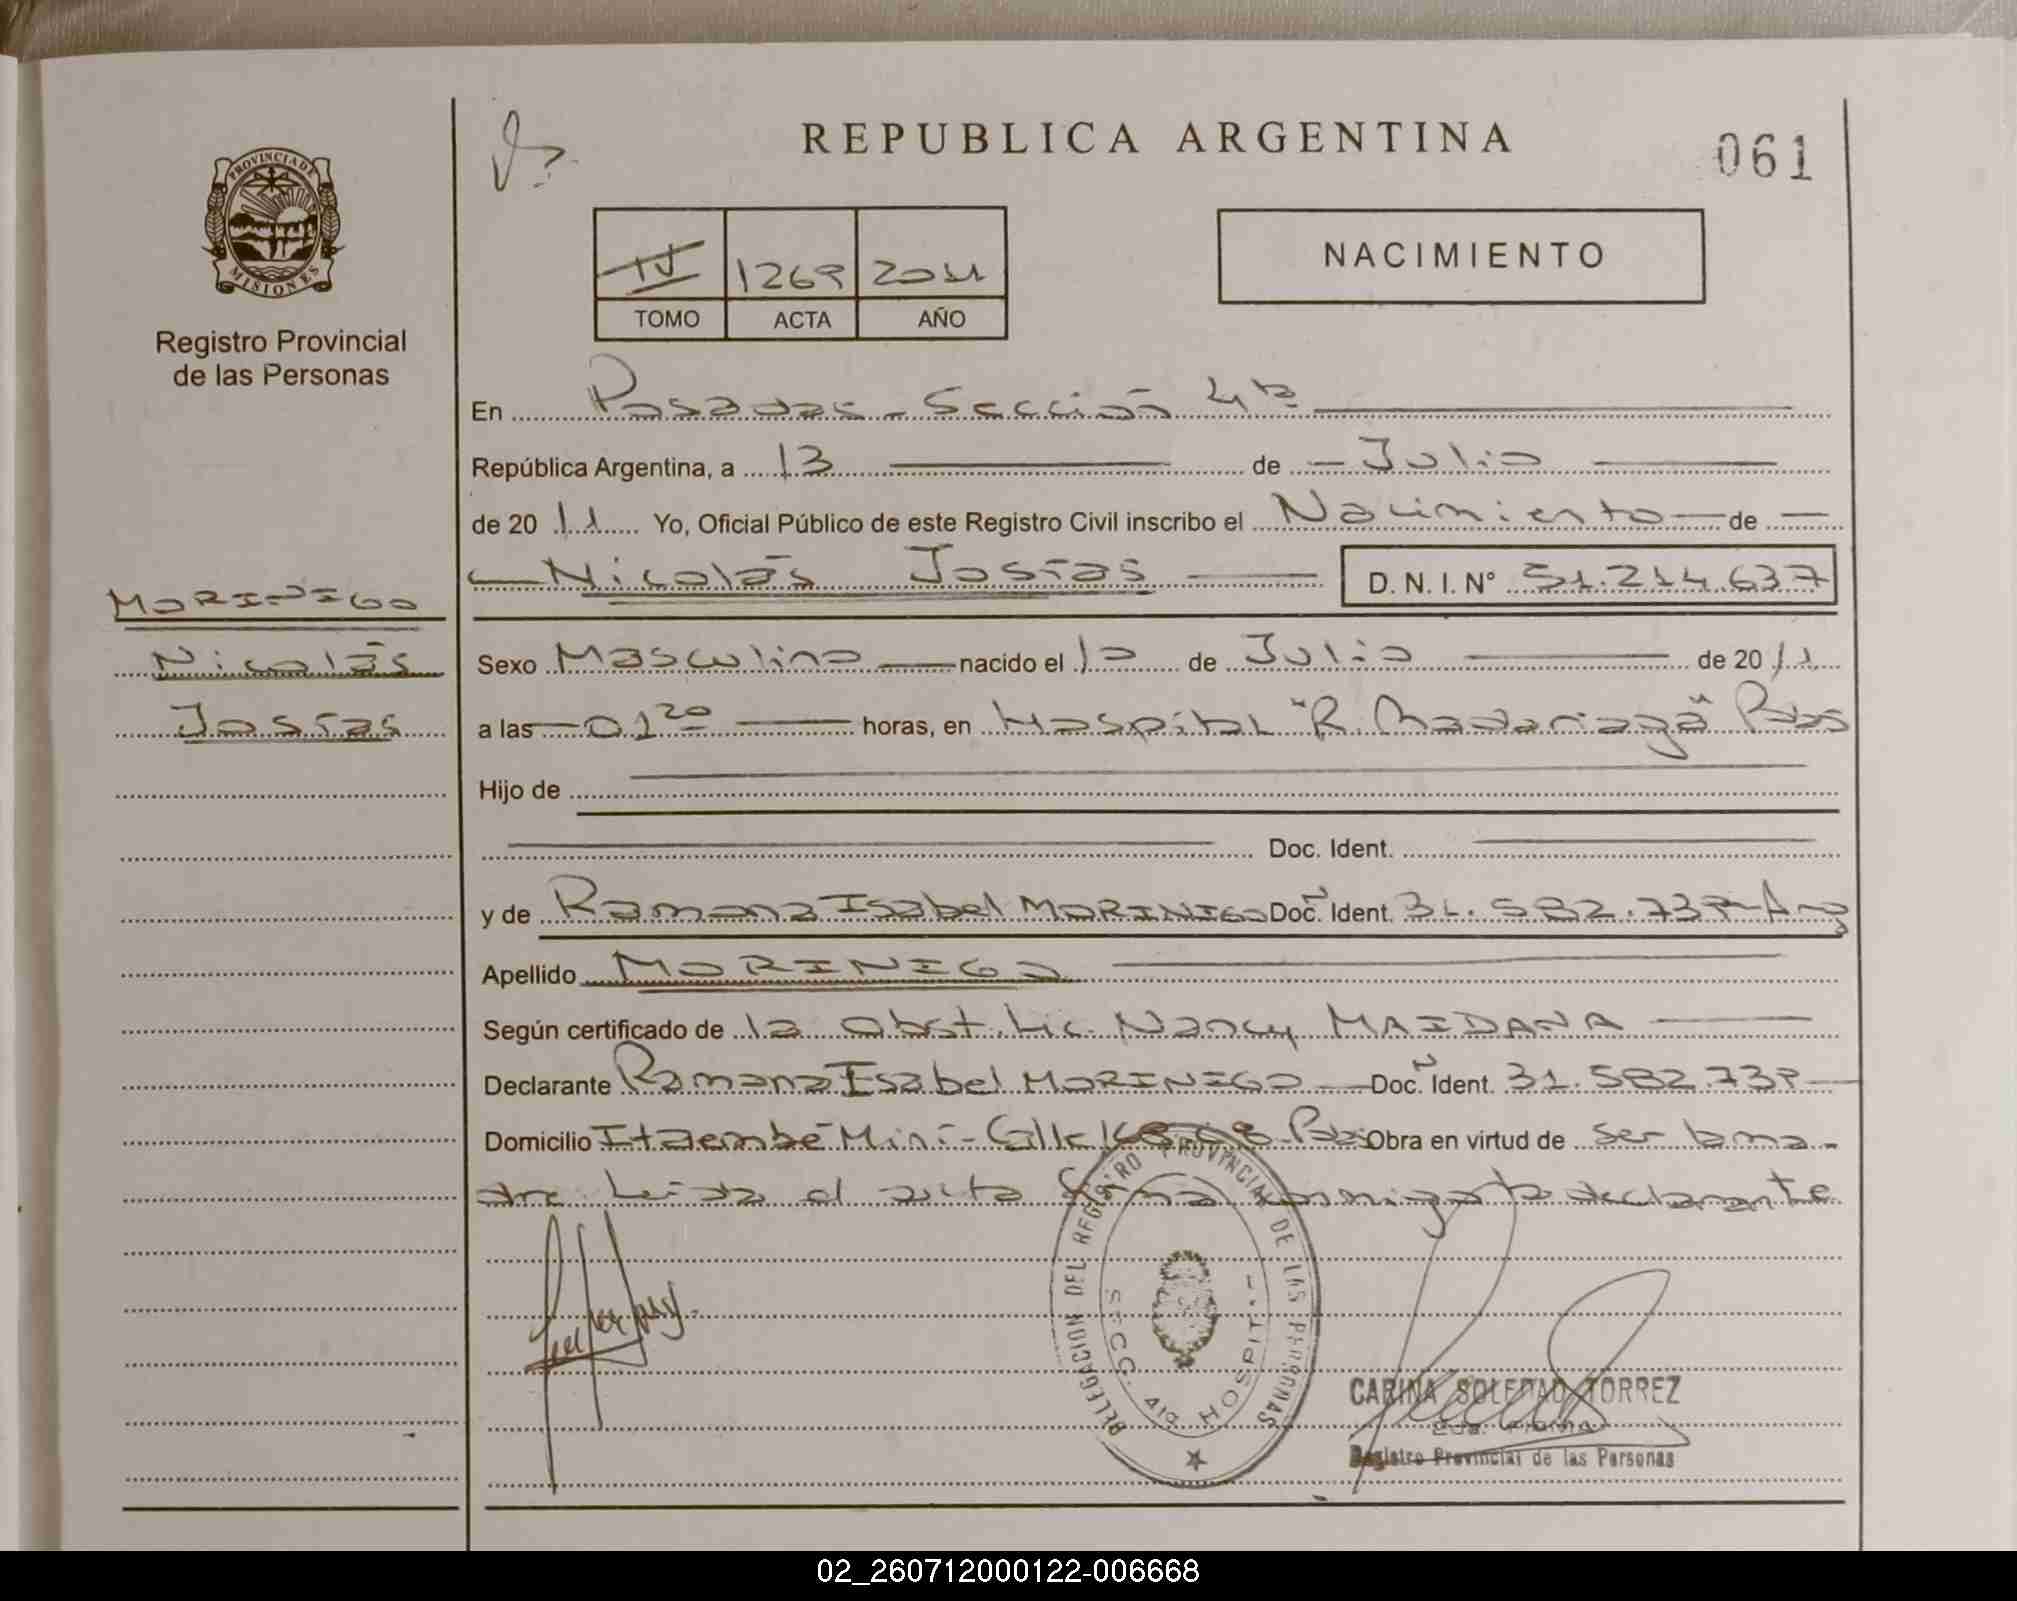 REPUBLICA ARGENTINA
061
PROVINCIA DE
MISIONES
Registro Provincial
de las Personas
IV 1269 2011
TOMO ACTA AÑO
NACIMIENTO
En Posadas - Sección 4ta
República Argentina, a 13 de Julio
de 2011 Yo, Oficial Público de este Registro Civil inscribo el Nacimiento de
Nicolás Josías D. N. I. N° 51.214.637
MORINIGO
Nicolás
Josías
Sexo Masculino nacido el 10 de Julio de 2011
a las 01 20 horas, en Hospital "R. Madariaga" Pdas
Hijo de
Doc. Ident.
y de Ramona Isabel MORINIGO Doc. Ident. 31.582.739 Arg
Apellido MORINIGO
Según certificado de la Obst. Lic. Nancy MAIDANA
Declarante Ramona Isabel MORINIGO Doc. Ident. 31.582.739
Domicilio Itaembé Miní - Calle Pdas Obra en virtud de ser la ma-
dre. Leída el acta firma conmigo la declarante
DELEGACION DEL REGISTRO PROVINCIAL DE LAS PERSONAS
SECC. 4ta HOSPITAL
CARINA SOLEDAD TORREZ
Registro Provincial de las Personas
02_260712000122-006668